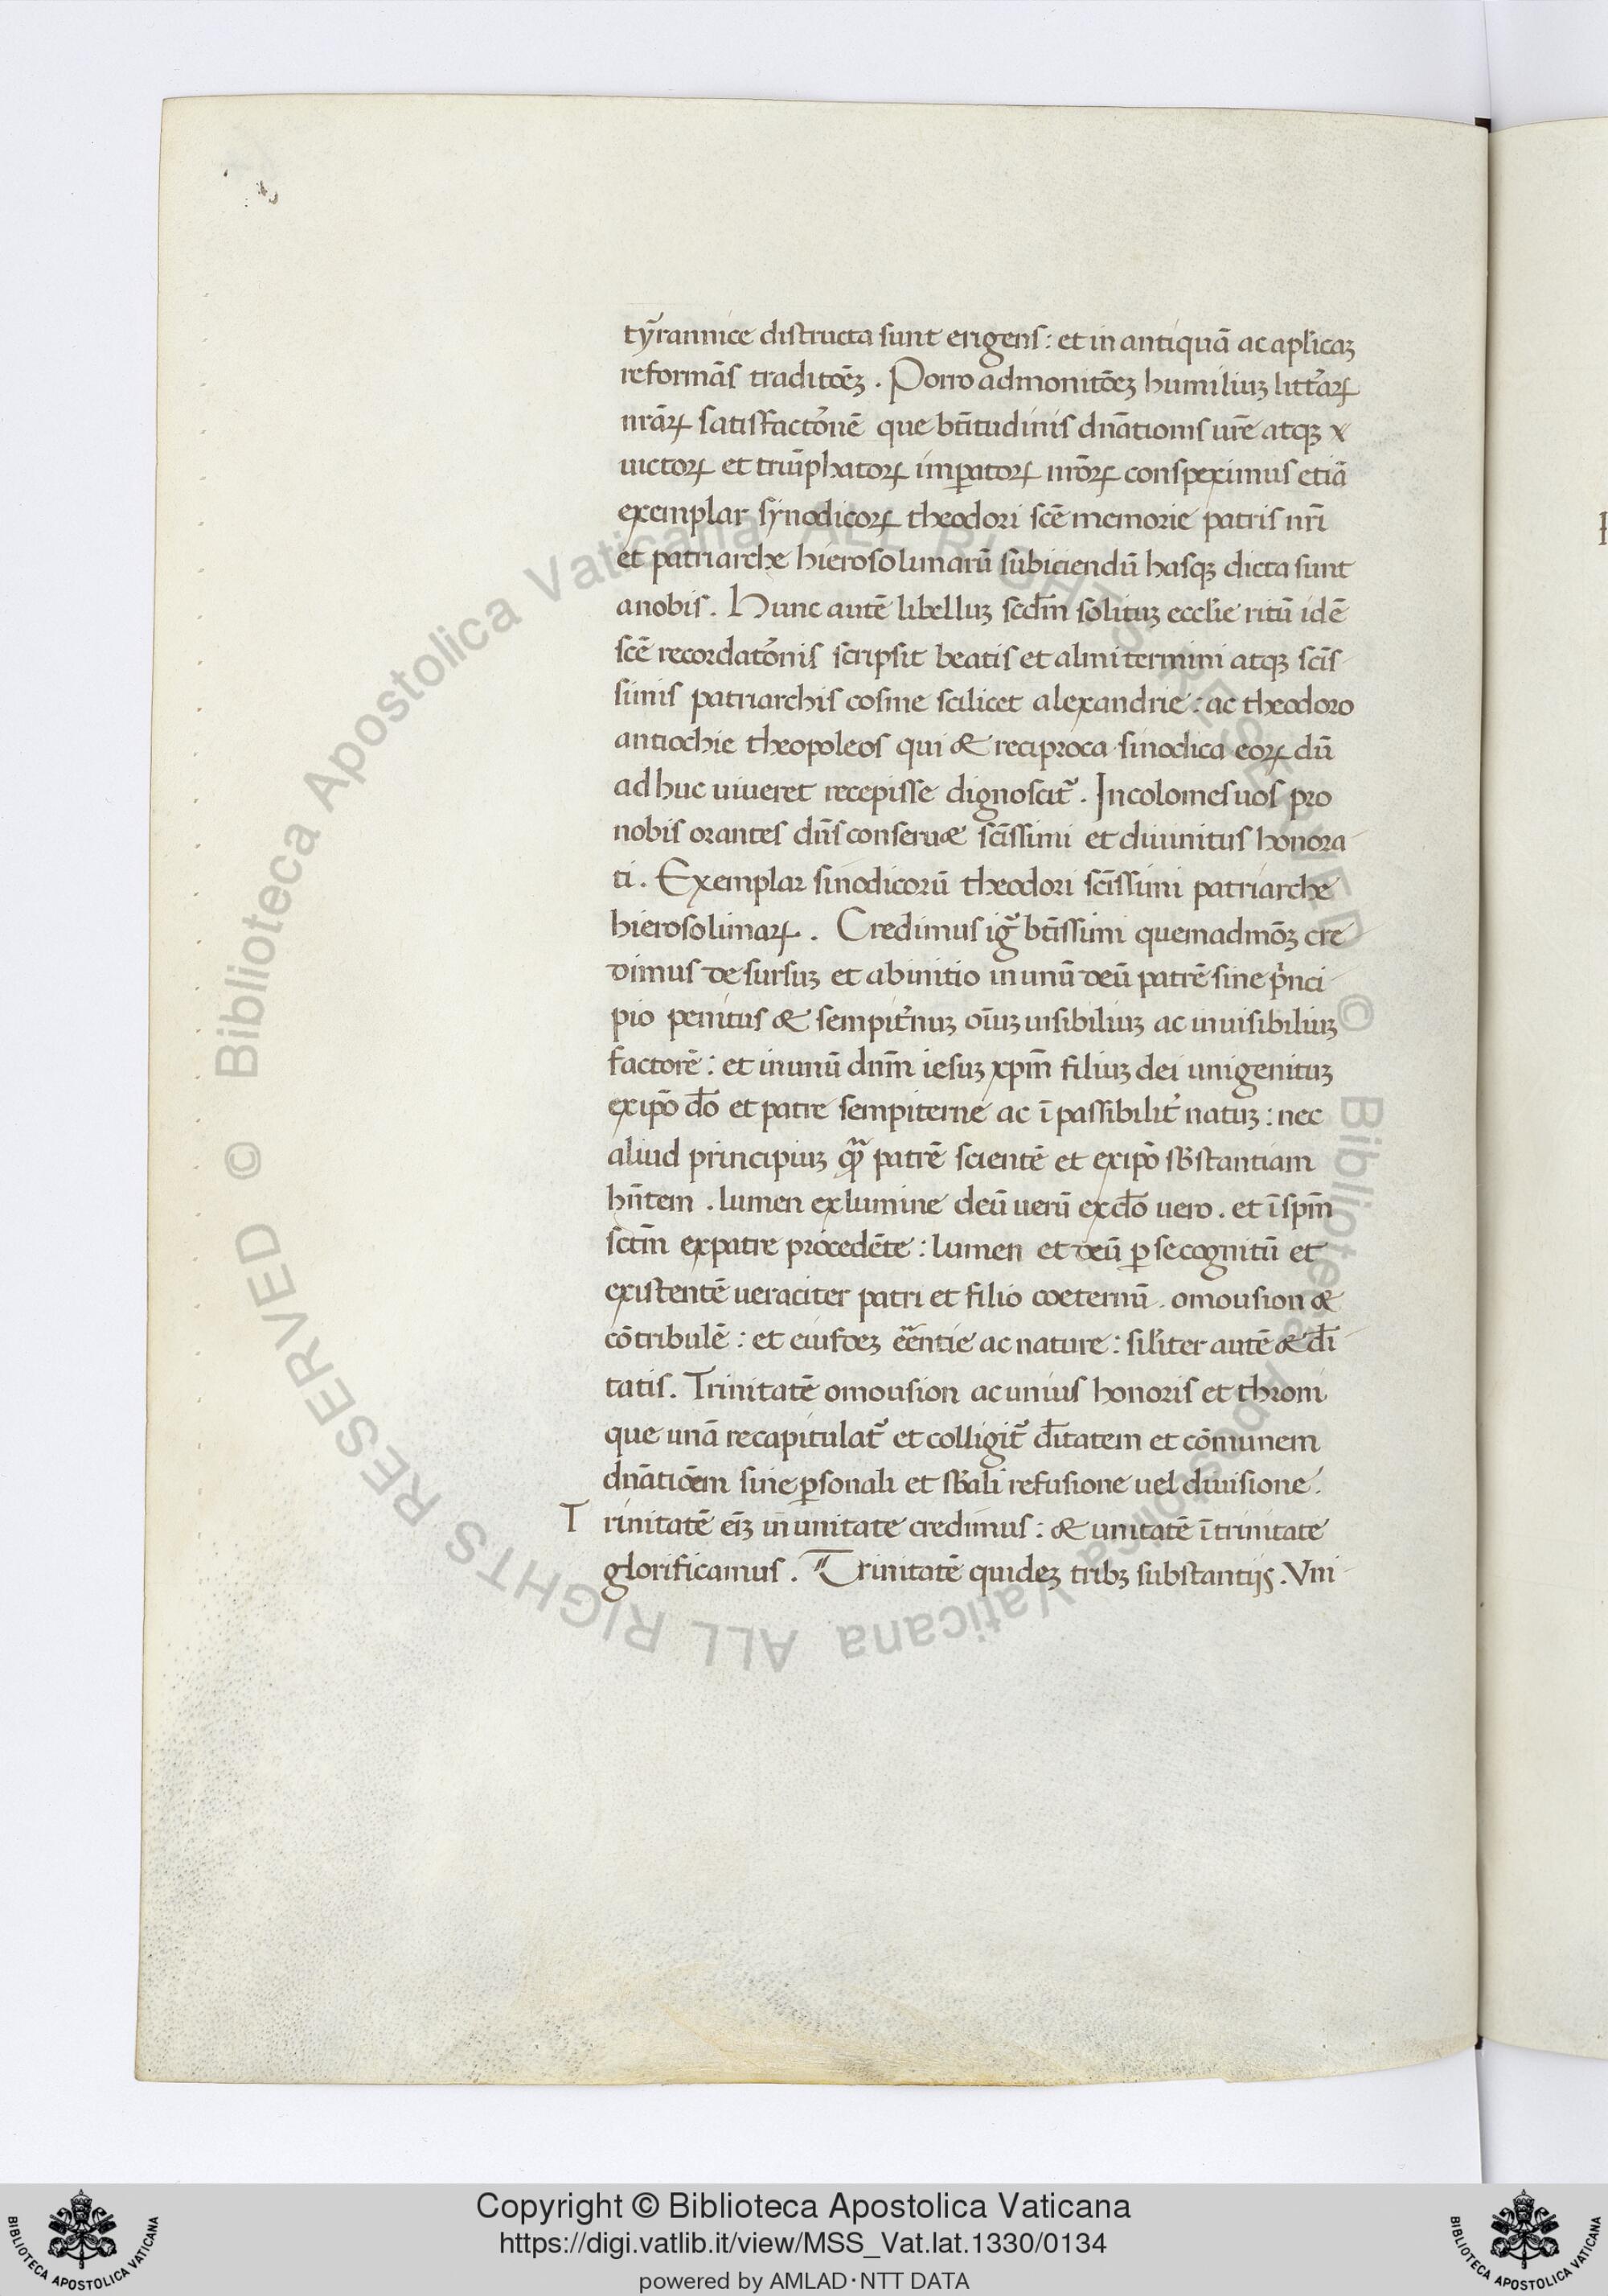 tyr̃annice distructa sunt erigens: et in antiquā ac apl̄icaꝫ
reformās traditōeꝫ. Porro admonitōeꝫ humiliuꝫ litt̃arꝝ
nrāꝝ satisfactõnē que bt̄itudinis dn̄ationis ur̄e atqꝫ x
uictoꝝ et triūphatoꝝ imꝑatoꝝ nrōꝝ conspeximus etiā
exemplar synodicoꝝ theodori scē memorie patris nr̄i
et patriarche hierosolimarū subiciendū hasqꝫ dicta sunt
anobis. Hunc autē libelluꝫ scdm̄ solituꝫ eccl̄ie ritū idē
scē recordatõnis scripsit beatis et almi termini atqꝫ scīs-
simis patriarchis cosme scilicet alexandrie: ac theodoro
antiochie theopoleos qui & reciproca sinodica eoꝝ dū
ad huc uiueret recepisse dignoscit᷑. Incolomes uos pro
nobis orantes dn̄s conseru& scīssimi et diuinitus honora-
ti. Exemplar sinodicorū theodori scīssimi patriarche
hierosolimaꝝ. Credimus ig᷑ bt̄issimi quemadmōꝫ cre
dimus de sursuꝫ et abinitio in unū deū patrē sine p̄nci
pio penitus & sempit̃nuꝫ oīuꝫ uisibiliuꝫ ac inuisibiliuꝫ
factorē: et in unū dnm̄ iesuꝫ xpm̄ filiuꝫ dei unigenituꝫ
exip̄o do̅ et patre sempiterne ac ī passibilit̃ natuꝫ: nec
aliud principiuꝫ qᷓꝫ patrē scientē et exip̄o sb̄stantiam
hn̄tem. lumen exlumine deū uerū exdo̅ uero. et ī spm̄
scm̄ expatre procedēte: lumen et deū ꝑ se cognitū et
existentē ueraciter patri et filio coeternū. omousion &
cōtribulē: et eiusdeꝫ eēntie ac nature: sil̄iter autē & di̅
tatis. Trinitatē omousion ac unius honoris et throni
que unā recapitulat᷑ et colligit᷑ di̅tatem et cōmunem
dn̄atiōem sine ꝑsonali et sb̄ali refusione uel diuisione.
Trinitatē eīꝫ in unitate credimus: & unitatē ī trinitate
glorificamus. Trinitatē quideꝫ tribꝫ substantijs. Vni
Copyright © Biblioteca Apostolica Vaticana
https://digi.vatlib.it/view/MSS_Vat.lat.1330/0134
powered by AMLAD·NTT DATA
BIBLIOTECA APOSTOLICA VATICANA
BIBLIOTECA APOSTOLICA VATICANA
© Biblioteca Apostolica Vaticana ALL RIGHTS RESERVED
© Biblioteca Apostolica Vaticana ALL RIGHTS RESERVED